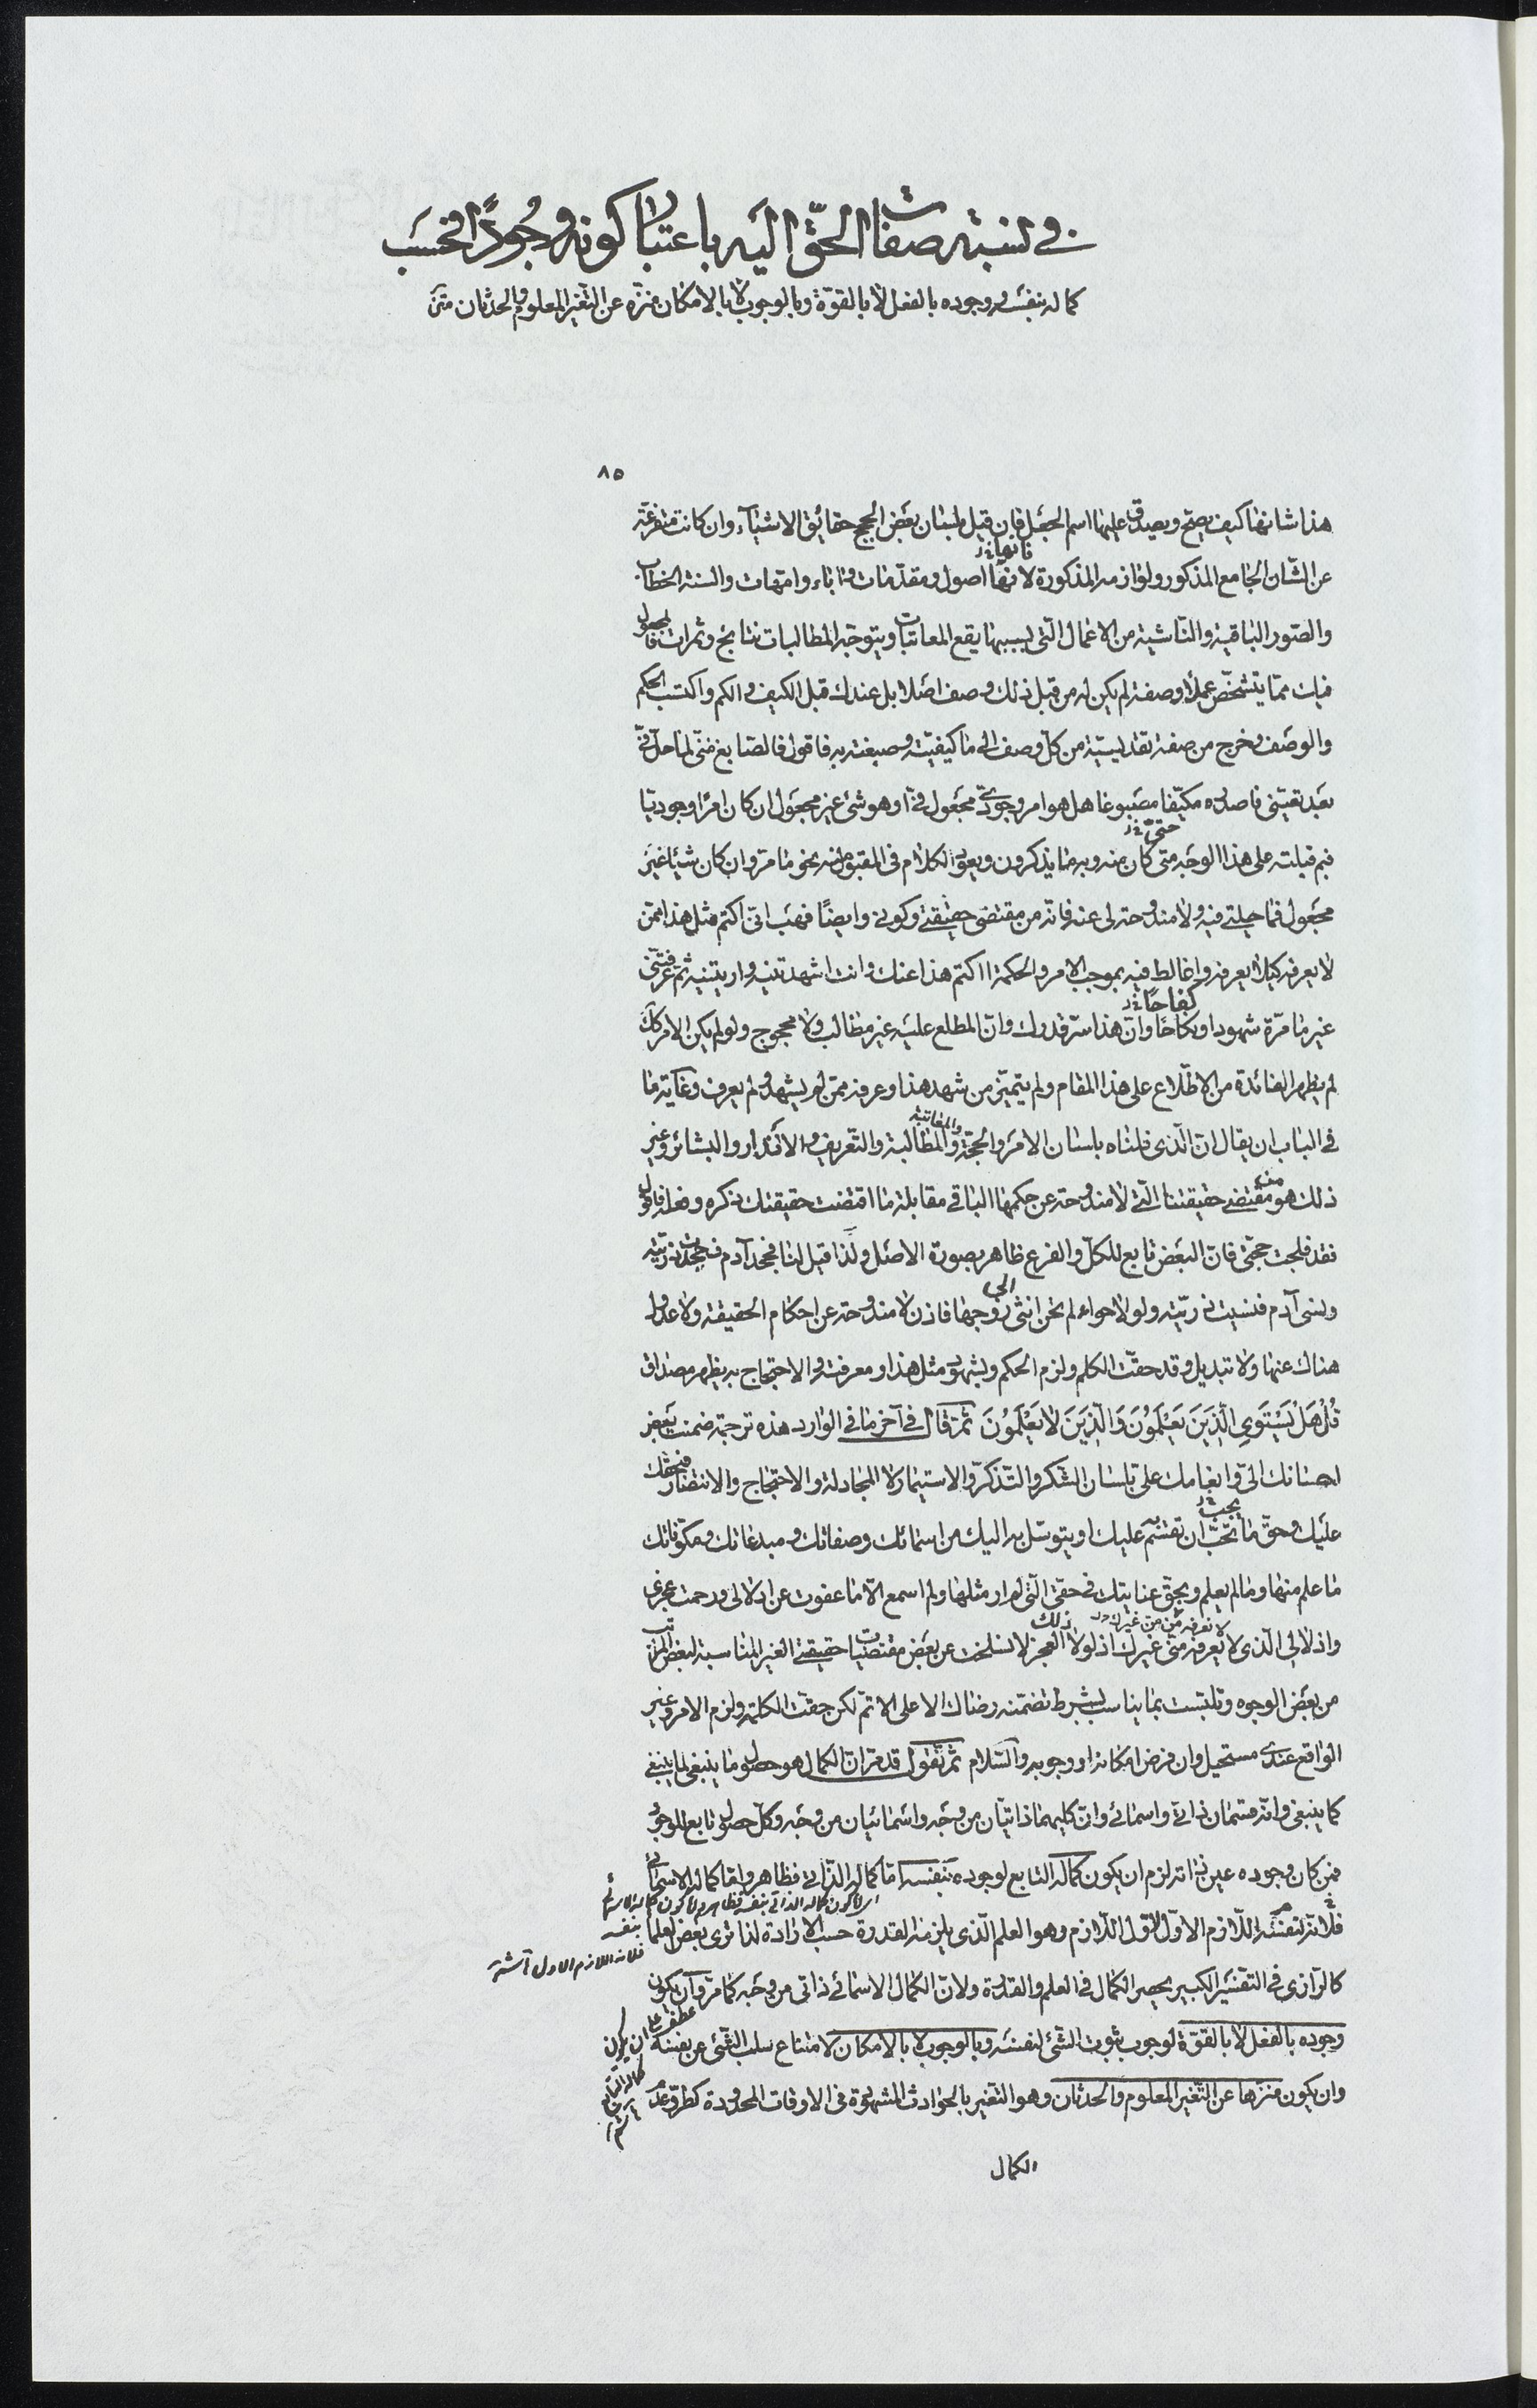 في نسبة صفات الحقّ اليه باعتبار كونه وجودًا فحسب
كماله بنفس وجوده بالفعل لا بالقوّة وبالوجوب لا بالامكان منزّه عن التغيّر المعلوم والحدثان متن
٨٥
هذا شانها كيف يصحّ ويصدق عليها اسم الجعل فان قيل بلسان بعض الحجج حقائق الاشياء وان كانت متفرعة
فانها
عن الشان الجامع المذكور ولوازمه المذكورة لانها اصول ومقدّمات واباء وامّهات والسنة الخطاب
والصّور الباقية والناشية من الاعمال الّتي بسببها يقع المعاتبات ويتوجّه المطالبات نتايج وثمرات فالمجعول
فيك ممّا يتشخّص عملا وصفة لم يكن له من قبل ذلك وصف اصلا بل عندك قبل الكيف والكم واكتسب الحكم
والوصف وخرج من صفة تقديسيّة من كلّ وصف الى ما كيفيّته وصبغته به فاقول فالصّابغ منّي لما حلّ فيّ
بعد تعيّني فاصدره مكيّفا مصبوغا هل هو امر وجوديّ مجعول فيّ او هو شئ غير مجعول ان كان امرًا وجوديّا
حتى
فبم قبلته على هذا الوجه متى كان منه وبه ما يذكرون ويعود الكلام في المقبول منه بنحو ما مرّ وان كان شيئا غير
مجعول فما حيلتي فيه ولا مندوحة لي عنه فانّه من مقتضى حقيقتي وكوني وايضًا فهب انّي اكتم مثل هذا عمّن
لا يعرفه كيلا يعرفه واخالط فيه بموجب الامر والحكمة ااكتم هذا عنك وانت اشهدتنيه واريتنيه ثم عرفتني
كفاحًا
غير ما مرّة شهودا وكفاحًا وانّ هذا سرّ قدرك وانّ المطلع عليه غير مطالب ولا محجوج ولو لم يكن الامر كذلك
لم يظهر الفائدة من الاطّلاع على هذا المقام ولم يتميّز من شهد هذا وعرفه ممّن لم يشهد ولم يعرف وغاية ما
والمعاتبة
في الباب ان يقال انّ الّذي قلناه بلسان الامر والحجّة والمطالبة والتّعريف والانذار والبشائر وغير
ذلك هو من مقتضى حقيقتنا الّتي لا مندوحة عن حكمها الباقي مقابلة ما اقتضت حقيقتك ذكره وفعله فاقول
فقد فلجت حجّتي فانّ البعض تابع للكلّ والفرع ظاهر بصورة الاصل ولذا قيل لنا فجحد آدم فجحدت ذريّته
ونسي آدم فنسيت ذريّته ولولا حوّاء لم تخن انثى زوجها فاذن لا مندوحة عن احكام الحقيقة ولا عدول
هناك عنها ولا تبديل وقد حقّت الكلم ولزم الحكم وبشهود مثل هذا ومعرفته والاحتجاج به يظهر مصداق
قُلْ هَلْ يَسْتَوِي الَّذِينَ يَعْلَمُونَ وَالَّذِينَ لَا يَعْلَمُونَ ثمّ قال في آخر ما في الوارد هذه ترجمة ضمنت بعض
احسانك اليّ وانعامك عليّ بلسان الشكر والتّذكّر والاستيمار لا المجادلة والاحتجاج والانتصار فبحقّك
يجب
عليك وحقّ ما تحبّ ان تقسم به عليك او يتوسّل به اليك من اسمائك وصفاتك ومبدعاتك ومكوّناتك
ما علم منها وما لم يعلم وبحقّ عنايتك في حقّي الّتي لم ار مثلها ولم اسمع الّا ما عفوت عن ادلالي ورحمت عجزي
لا تعرفه منّي من غيرك ذلك
واذلالي الّذي لا يعرفه منّي غيرك اذ لولا العجز لانسلخت عن بعض مقتضيات حقيقتي الغير المناسبة لبعض المراتب
من بعض الوجوه وتلبّست بما يناسب بشرط تضمّنه رضاك الاعلى الاتمّ لكن حقّت الكلمة ولزم الامر وغير
الواقع عندي مستحيل وان فرض امكانه او وجوبه والسّلام ثم نقول قد مرّ انّ الكمال هو حصول ما ينبغي لما ينبغي
كما ينبغي وانّه قسمان ذاتي واسمائي وانّ كليهما ذاتيّان من وجه واسمائيان من وجه وكلّ حصول تابع للوجود
فمن كان وجوده عين ذاته لزم ان يكون كماله التابع لوجوده بنفسه امّا كماله الذّاتي فظاهر وامّا كماله الاسمائي
اي اما كون كماله الذاتي بنفسه فظاهر واما كون كماله الاسمائي بنفسه
فلانّه لنفسه اللّازم الاوّل الاوّل اللّازم وهو العلم الّذي يلزمه القدرة حسب الارادة لذا نرى بعض العلماء
فلانه اللازم الاول
كالرّازي في التفسير الكبير يحصر الكمال في العلم والقدرة ولانّ الكمال الاسمائي ذاتي من وجه كما مرّ وان يكون
عطف على ان يكون
وجوده بالفعل لا بالقوّة لوجوب ثبوت الشئ لنفسه وبالوجوب لا بالامكان لامتناع سلب الشئ عن نفسه
وان يكون منزّها عن التّغيّر المعلوم والحدثان وهو التغيّر بالحوادث المشهودة في الاوقات المحدودة كطروّ عدم
الكمال